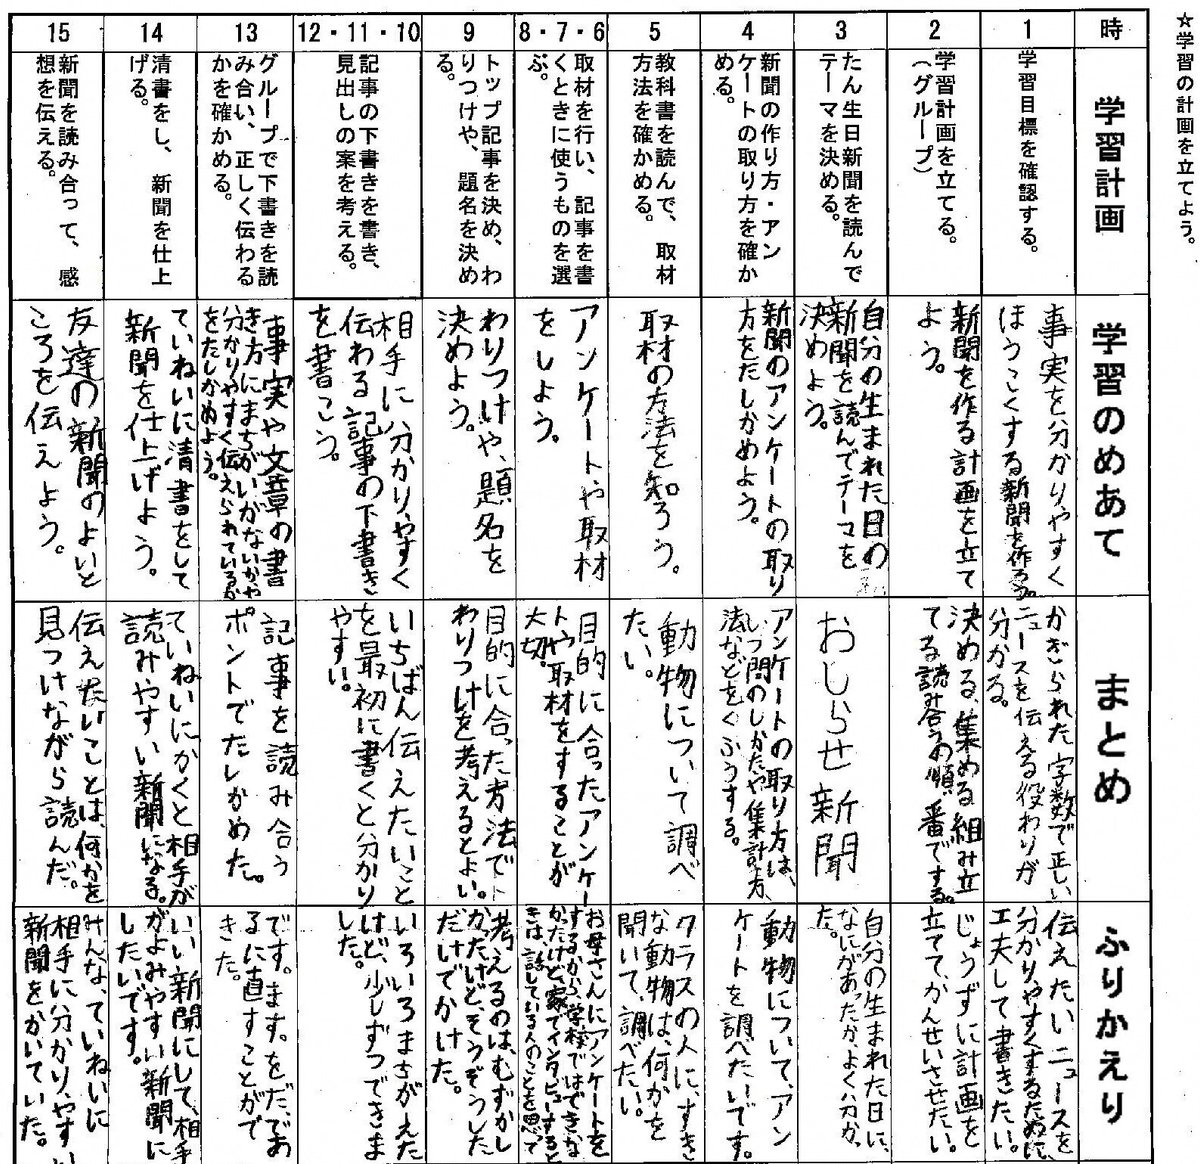 ☆学習の計画を立てよう。
時
学習計画
学習のめあて
まとめ
ふりかえり
1
学習目標を確認する。
事実を分かりやすく
ほうこくする新聞を作ろう。
かぎられた字数で正しい
ニュースを伝える役わりが
分かる。
伝えたいニュースを
分かりやすくするために、
工夫して書きたい。
2
学習計画を立てる。
(グループ)
新聞を作る計画を立て
よう。
決める、集める、組み立
てる、読み合うの順番でする。
じょうずに計画を
立てて、かんせいさせたい。
3
たん生日新聞を読んで
テーマを決める。
自分の生まれた日の
新聞を読んでテーマを
決めよう。
おしらせ新聞
自分の生まれた日に、
なにがあったか、よく分かっ
た。
4
新聞の作り方・アン
ケートの取り方を確か
める。
新聞のアンケートの取り
方をたしかめよう。
アンケートの取り方は、
いつ問のしかたや集計方
法などをくふうする。
動物について、アン
ケートを調べたいです。
5
教科書を読んで、取材
方法を確かめる。
取材の方法を知ろう。
動物について調べ
たい。
クラスの人に、すき
な動物は、何かを
聞いて、調べたい。
8・7・6
取材を行い、記事を書
くときに使うものを選
ぶ。
アンケートや取材
をしよう。
目的に合ったアンケー
トや取材をすることが
大切。
お母さんにアンケートを
するから、学校ではできな
かったけど、家でインタビューすると
きは、話している人のことを思って
9
トップ記事を決め、わ
りつけや、題名を決め
る。
わりつけや、題名を
決めよう。
目的に合った方法で
わりつけを考えるとよい。
考えるのは、むずかし
かったけど、そうぞうした
だけでかけた。
12・11・10
記事の下書きを書き、
見出しの案を考える。
相手に分かりやすく
伝わる記事の下書き
を書こう。
いちばん伝えたいこと
を最初に書くと分かり
やすい。
いろいろまちがえた
けど、少しずつできま
した。
13
グループで下書きを読
み合い、正しく伝わる
かを確かめる。
事実や文章の書
き方にまちがいがないかや
分かりやすく伝えられているか
をたしかめよう。
記事を読み合う
ポイントでたしかめた。
です。ます。をだ、であ
るに直すことがで
きた。
14
清書をし、新聞を仕上
げる。
ていねいに清書をして
新聞を仕上げよう。
ていねいにかくと相手が
読みやすい新聞になる。
いい新聞にして、相手
がよみやすい新聞に
したいです。
15
新聞を読み合って、感
想を伝える。
友達の新聞のよいと
ころを伝えよう。
伝えたいことは、何かを
見つけながら読んだ。
みんな、ていねいに
相手に分かりやすい
新聞をかいていた。